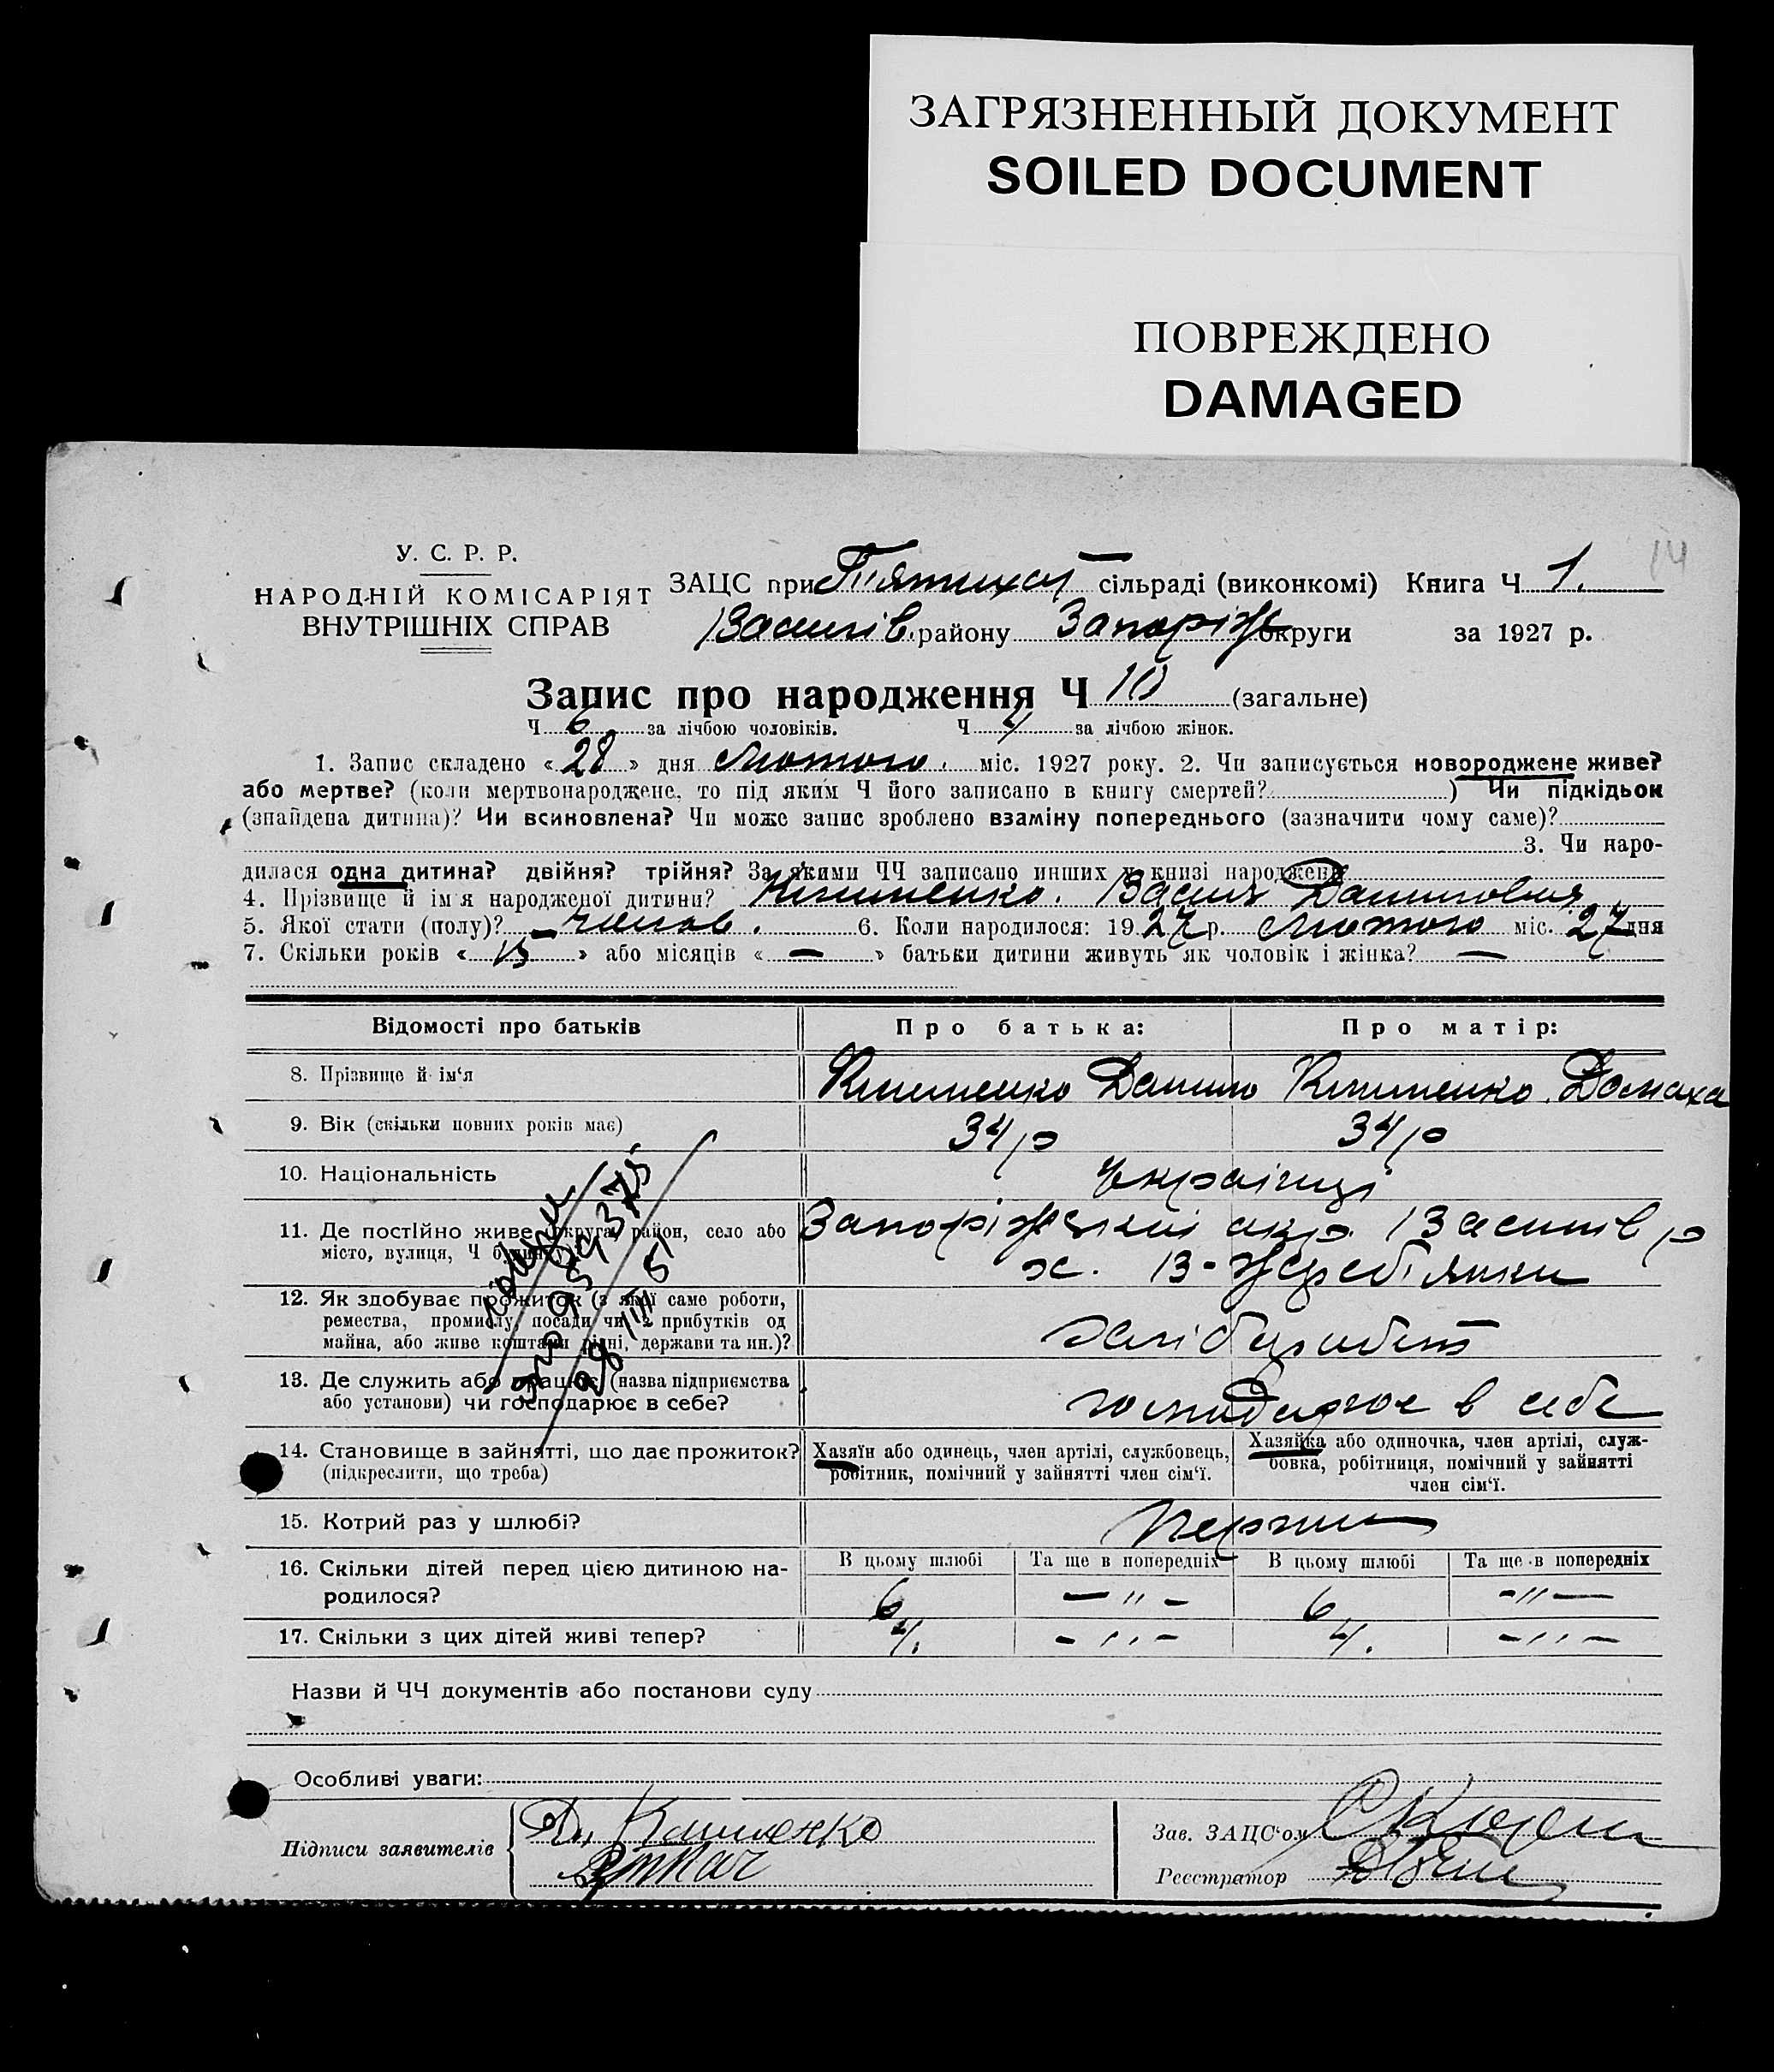 ЗАГРЯЗНЕННЫЙ ДОКУМЕНТ
SOILED DOCUMENT
ПОВРЕЖДЕНО
DAMAGED
14
У. С. Р. Р.
НАРОДНІЙ КОМІСАРІЯТ
ВНУТРІШНІХ СПРАВ
ЗАЦС при П'ятихат сільраді (виконкомі) Книга Ч 1.
Василів. району Запоріж округи за 1927 р.
Запис про народження Ч 10 (загальне)
Ч 6 за лічбою чоловіків. Ч 4 за лічбою жінок.
1. Запис складено « 28 » дня Лютого. міс. 1927 року. 2. Чи записується новороджене живе?
або мертве? (коли мертвонароджене, то під яким Ч його записано в книгу смертей? ) Чи підкідьок
(знайдена дитина)? Чи всиновлена? Чи може запис зроблено взаміну попереднього (зазначити чому саме)?
3. Чи наро-
дилася одна дитина? двійня? трійня? За якими ЧЧ записано инших у книзі народжень
4. Прізвище й ім'я народженої дитини? Клименко. Василь Данилович
5. Якої стати (полу)? чолов. 6. Коли народилося: 19 27 р. Лютого міс. 27 дня
7. Скільки років « 15 » або місяців « — » батьки дитини живуть як чоловік і жінка? —
Відомості про батьків
Про батька:
Про матір:
8. Прізвище й ім'я
Клименко Данило
Клименко. Домаха
9. Вік (скільки повних років має)
34 р
34 р
10. Національність
Українці
11. Де постійно живе (округа, район, село або
місто, вулиця, Ч будинку)?
Запоріжський окр. Василів р
х. В-Жереб'янки
12. Як здобуває прожиток (з якої саме роботи,
ремества, промислу, посади чи з прибутків од
майна, або живе коштами рідні, держави та ин.)?
хлібороб
13. Де служить або працює (назва підприємства
або установи) чи господарює в себе?
господарює в себе
28/III 51
14. Становище в зайнятті, що дає прожиток?
(підкреслити, що треба)
Хазяїн або одинець, член артілі, службовець,
робітник, помічний у зайнятті член сім'ї.
Хазяйка або одиночка, член артілі, служ-
бовка, робітниця, помічний у зайнятті
член сім'ї.
15. Котрий раз у шлюбі?
Перший
16. Скільки дітей перед цією дитиною на-
родилося?
В цьому шлюбі
Та ще в попередніх
В цьому шлюбі
Та ще в попередніх
6 — " — 6 — " —
17. Скільки з цих дітей живі тепер? 4. — " — 4. — " —
Назви й ЧЧ документів або постанови суду
Особливі уваги:
Підписи заявителів
Дн Клименко
Зав. ЗАЦС'ом
Реєстратор